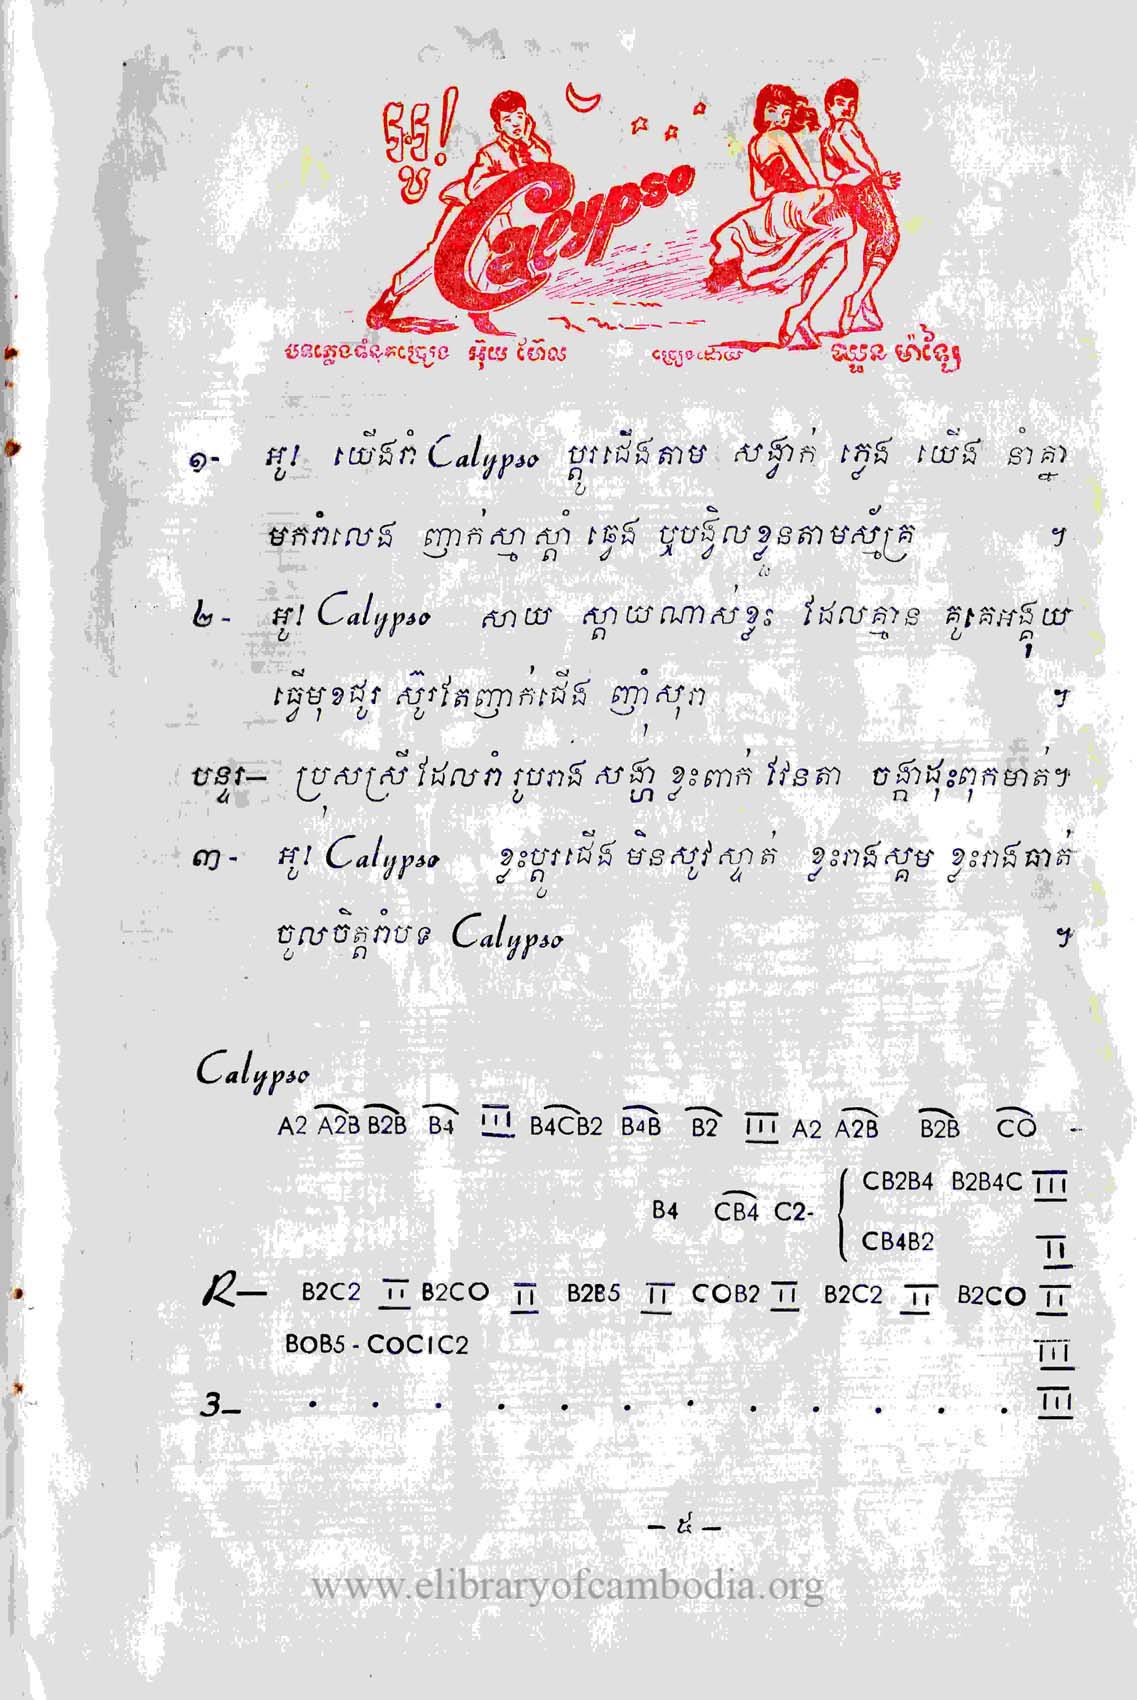 អូ!
Calypso
បទភ្លេងទំនុកច្រៀង អ៊ុយ ហែ៊ល ច្រៀងដោយ ឈួន ម៉ាឡៃ
១- អូ! យើងរាំ Calypso ប្ដូរជើងតាម សង្វាក់ ភ្លេង យើង នាំគ្នា
មករាំលេង ញាក់ស្មាស្ដាំ ឆ្វេង ឬបង្វិលខ្លួនតាមស្ម័គ្រ ៗ
២- អូ! Calypso សាយ ស្ដាយណាស់ខ្លះ ដែលគ្មាន គូគេអង្គុយ
ធ្វើមុខជូរ ស៊ូរតែញាក់ជើង ញុាំសុរា ៗ
បន្ទរ— ប្រុសស្រី ដែលរាំ រូបរាង សង្ហា ខ្លះពាក់ វែនតា ចង្កាដុះពុកមាត់ៗ
៣- អូ! Calypso ខ្លះប្ដូរជើង មិនសូវស្ទាត់ ខ្លះរាងស្គម ខ្លះរាងធាត់
ចូលចិត្តរាំបទ Calypso ៗ
Calypso
A2 A2B B2B B4 III B4CB2 B4B B2 III A2 A2B B2B CO -
CB2B4 B2B4C III
B4 CB4 C2-
CB4B2 II
R— B2C2 II B2CO II B2B5 II COB2 II B2C2 II B2CO II
BOB5 - COC1C2 III
3— . . . . . . . . . . . . III
— ៥ —
www.elibraryofcambodia.org